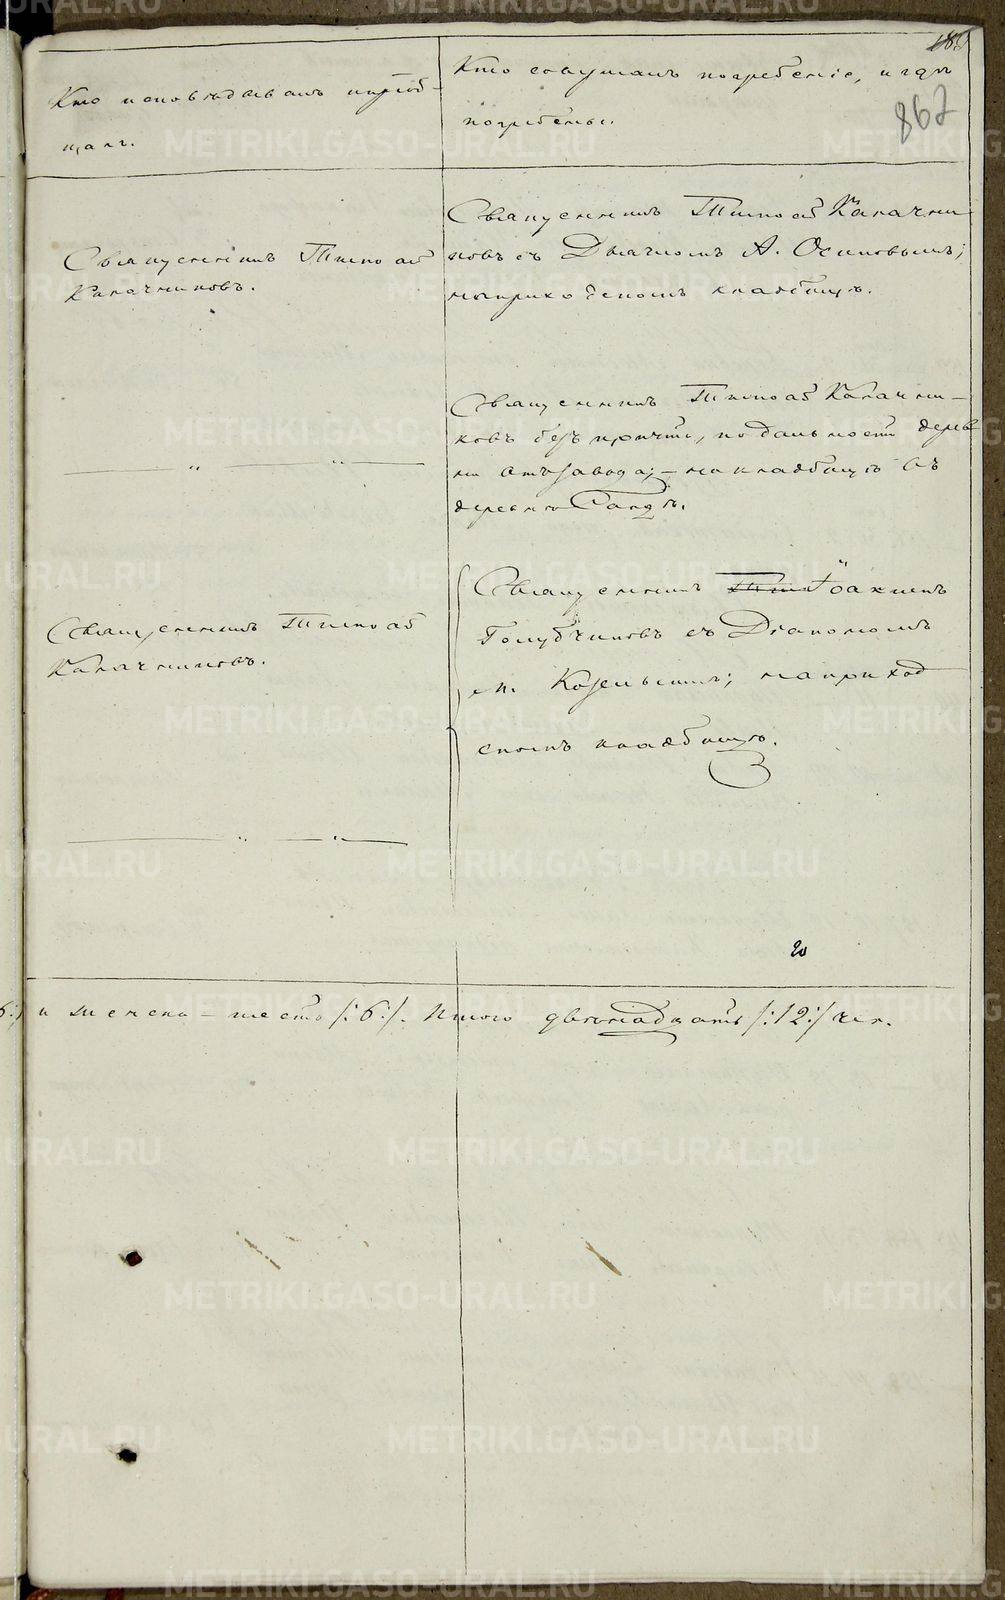 189
862
Кто исповѣдывалъ и пріоб-
щалъ.
Кто совершалъ погребеніе, и гдѣ
погребены.
Священникъ Тимоѳей
Калачниковъ.
Священникъ Тимоѳей Калачни
ковъ съ Дьячкомъ А. Осиповымъ;
на приходскомъ кладбищѣ.
Священникъ Тимоѳей Калачни-
ковъ безъ причта, по дальности дерев
ни отъ завода; - на кладбищѣ въ
деревнѣ
Священникъ Тимоѳей
Калачниковъ.
Священникъ Іоакимъ
Голубчиковъ съ Діакономъ
на приход
скомъ кладбищѣ.
6:/ и женска - шесть /:6:/. Итого двѣнадцать /:12:/ чел.
METRIKI.GASO-URAL.RU